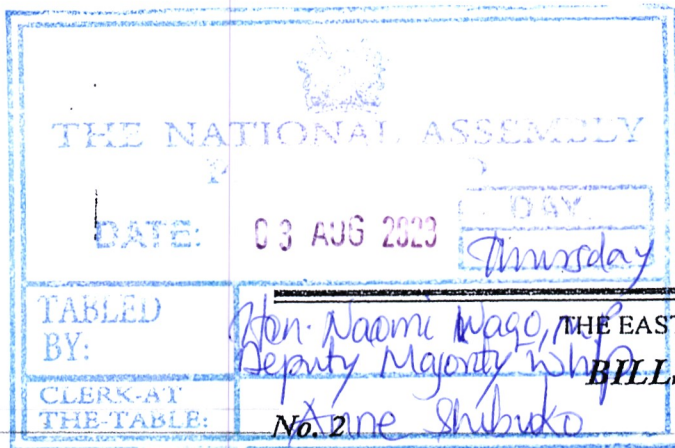 THE NATIONAL ASSEMBLY
DATE: 03 AUG 2023
DAY
Thursday
TABLED BY:
Hon. Naomi Waqo, MP
Deputy Majority Whip
THE EAST
BILLS
CLERK-AT
THE-TABLE:
Anne Shibuko
No. 2